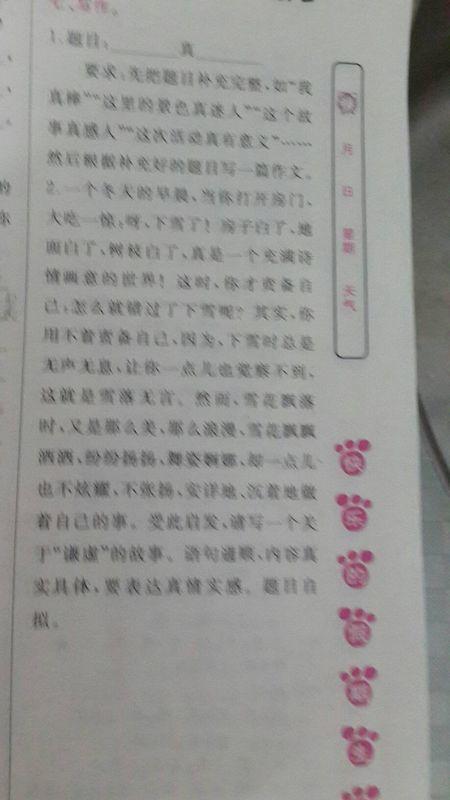 1. 题目：________真________
要求：先把题目补充完整，如“我
真棒”“这里的景色真迷人”“这个故
事真感人”“这次活动真有意义”……
然后根据补充好的题目写一篇作文。
2. 一个冬天的早晨，当你打开房门，
大吃一惊：呀，下雪了！房子白了，地
面白了，树枝白了，真是一个充满诗
情画意的世界！这时，你才责备自
己：怎么就错过了下雪呢？其实，你
用不着责备自己，因为，下雪时总是
无声无息，让你一点儿也觉察不到，
这就是雪落无言。然而，雪花飘落
时，又是那么美，那么浪漫，雪花飘飘
洒洒，纷纷扬扬，舞姿婀娜，却一点儿
也不炫耀，不张扬，安详地、沉着地做
着自己的事。受此启发，请写一个关
于“谦虚”的故事。语句通顺，内容真
实具体，要表达真情实感。题目自
拟。
月
日
星期
天气
的
你
快
乐
的